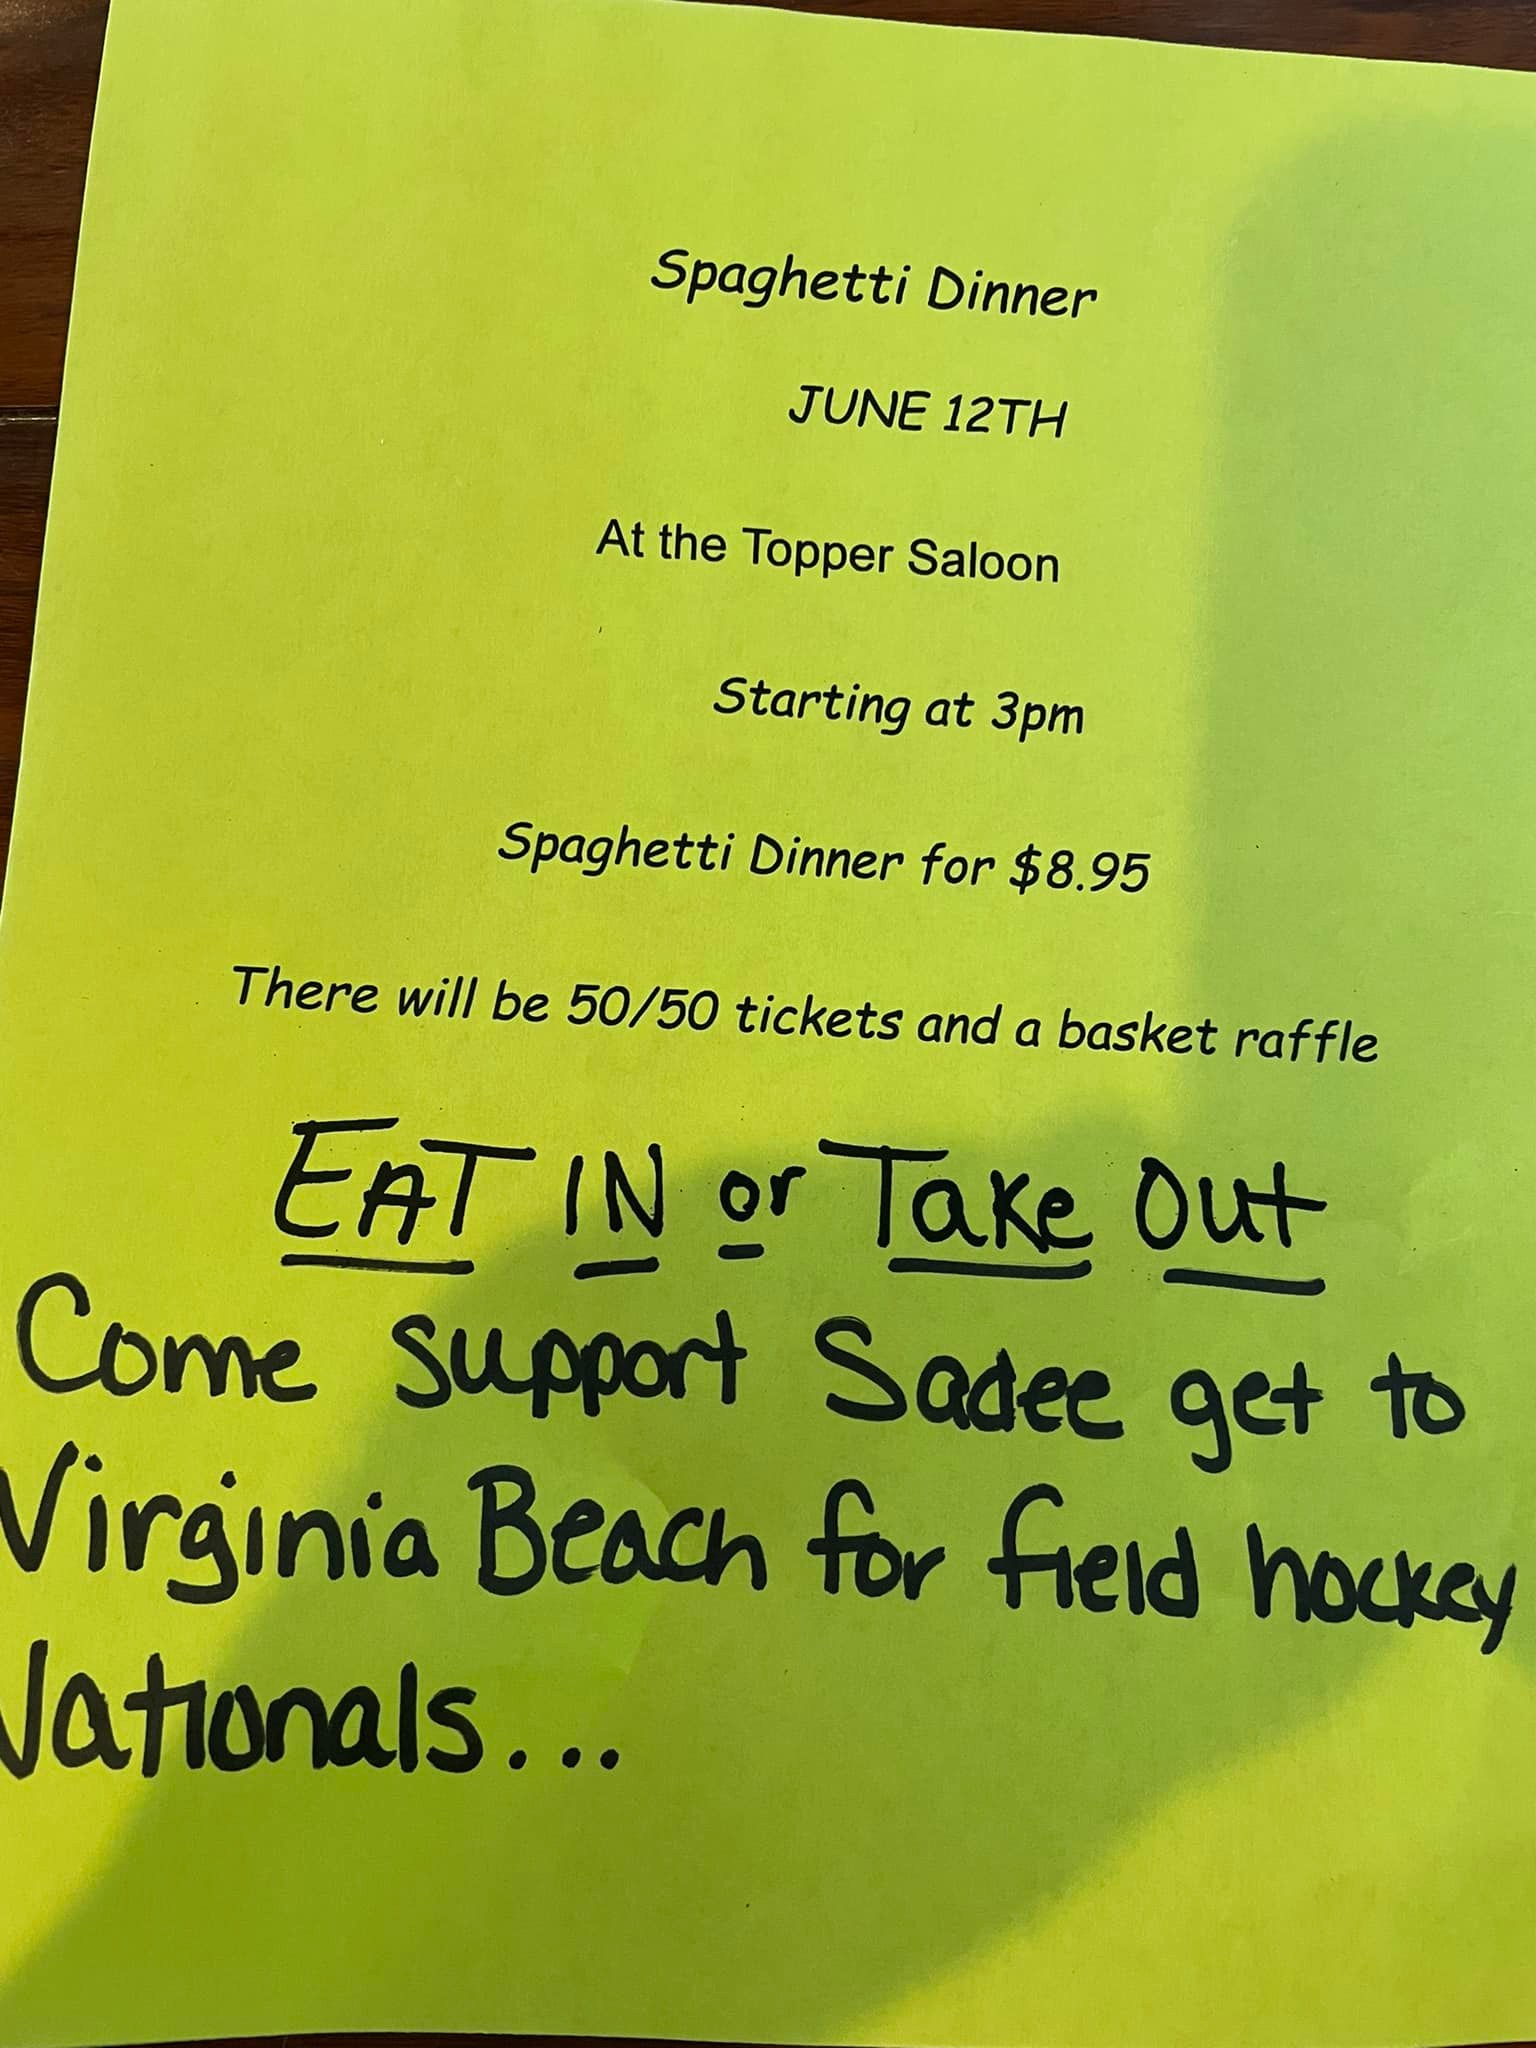 Spaghetti Dinner
JUNE 12TH
At the Topper Saloon
Starting at 3pm
Spaghetti Dinner for $8.95
There will be 50/50 tickets and a basket raffle
EAT IN or Take Out
Come support Sadee get to
Virginia Beach for field hockey
Nationals...